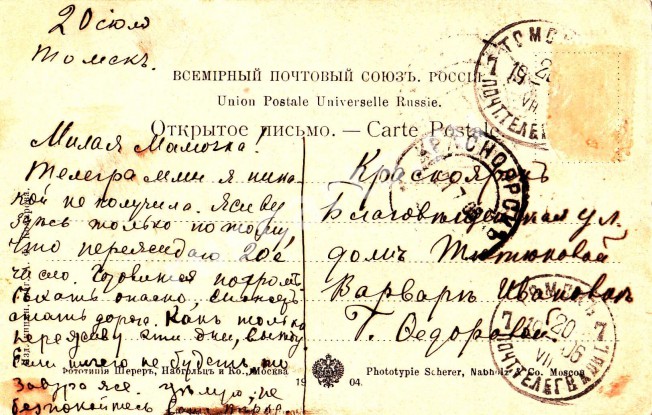 20 іюля
Томскъ.
ВСЕМІРНЫЙ ПОЧТОВЫЙ СОЮЗЪ. РОССІЯ
Union Postale Universelle Russie.
Открытое письмо. — Carte Postale
Милая Мамочка!
Телеграммы я ника-
кой не получила. Я живу
здѣсь только потому,
что пережидаю 20е
число.
ѣхать опасно,
дорога. Какъ только
пережду эти дни, выѣду
Если ничего не будетъ то
завтра же. Цѣлую, не
безпокойтесь
Красноярскъ
Благовѣщенская ул.
домъ
Варварѣ Ивановнѣ
Г. Ѳедоровой.
ТОМСКЪ
ПОЧТ. ТЕЛЕГ.
КРАСНОЯРСКЪ
ТОМСКЪ
7 20 7
VII 06
ПОЧ. ТЕЛЕГ. К
Фототипія Шереръ, Набгольцъ и Ко., Москва
19 04.
Phototypie Scherer, Nabholz & Co. Moscou